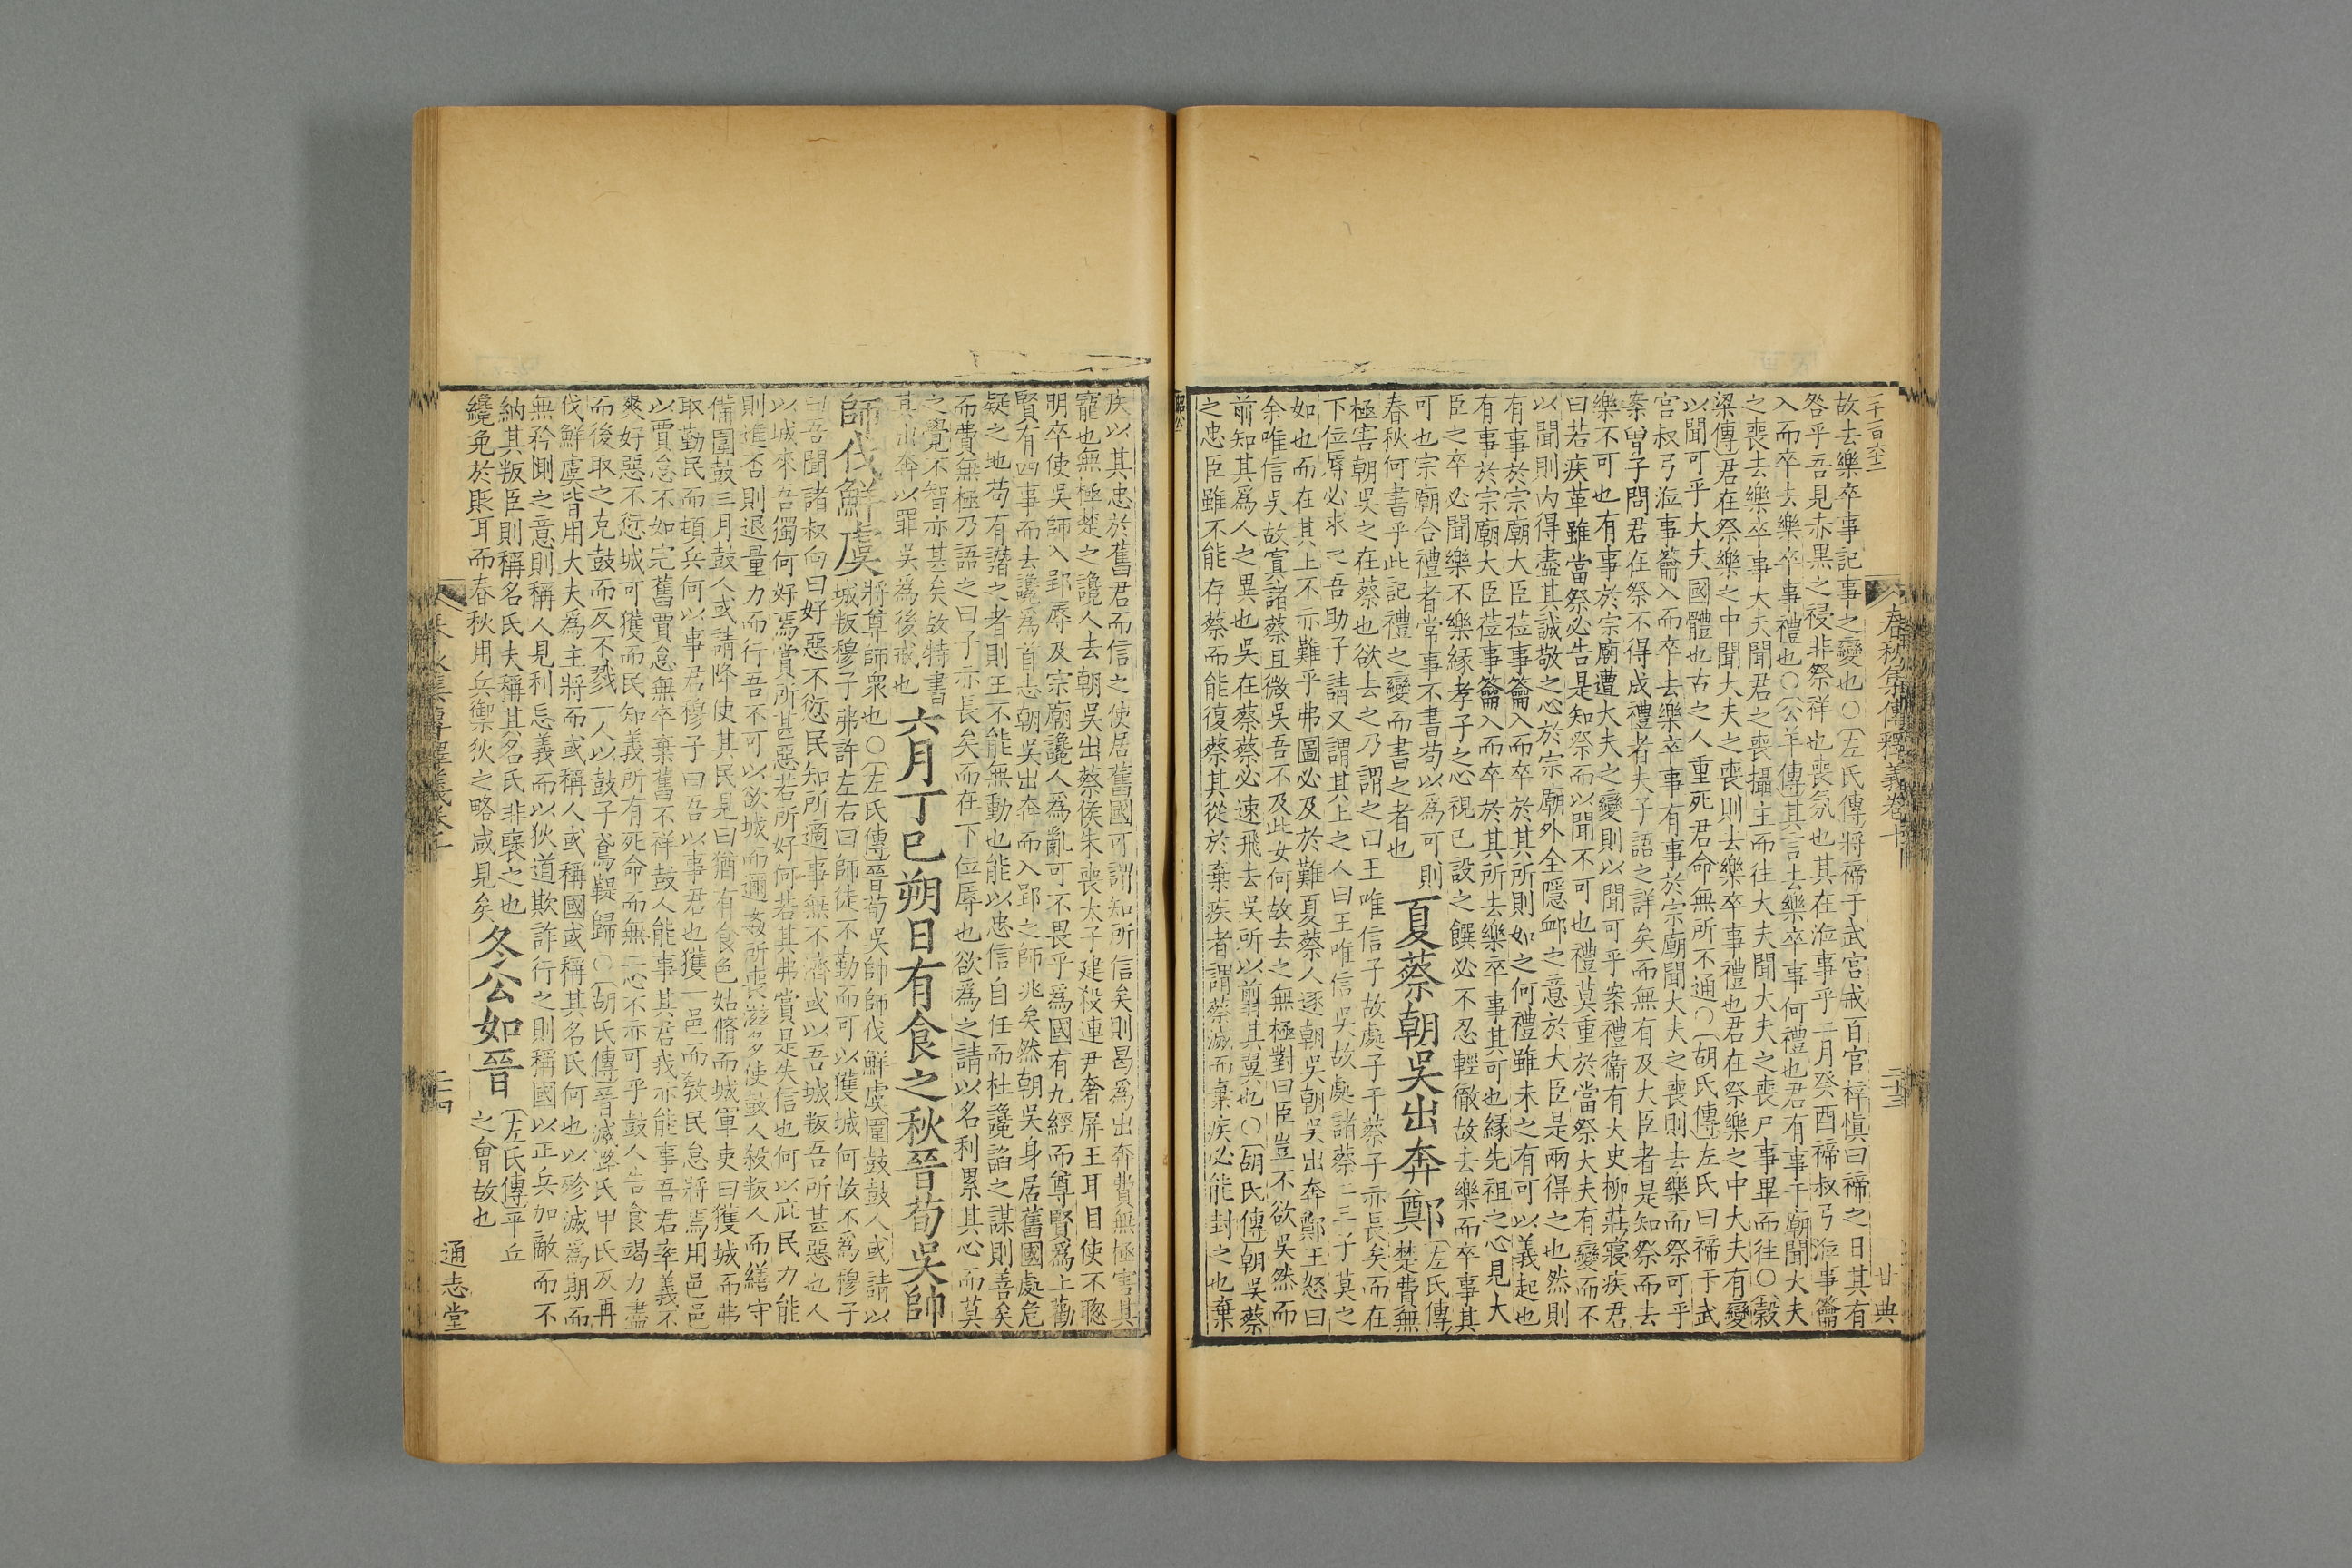 二千一百六十二
春秋集傳釋義卷十
二十三
甘典
故去樂卒事記事之變也○左氏傳將禘于武宮戒百官梓慎曰禘之日其有
咎乎吾見赤黑之祲非祭祥也喪氛也其在涖事乎二月癸酉禘叔弓涖事籥
入而卒去樂卒事禮也○公羊傳其言去樂卒事何禮也君有事于廟聞大夫
之喪去樂卒事大夫聞君之喪攝主而往大夫聞大夫之喪尸事畢而往○穀
梁傳君在祭樂之中聞大夫之喪則去樂卒事禮也君在祭樂之中大夫有變
以聞可乎大夫國體也古之人重死君命無所不通○胡氏傳左氏曰禘于武
宮叔弓涖事籥入而卒去樂卒事有事於宗廟聞大夫之喪則去樂而祭可乎
案曾子問君在祭不得成禮者夫子語之詳矣而無有及大臣者是知祭而去
樂不可也有事於宗廟遭大夫之變則以聞可乎案禮衞有大史柳莊寢疾君
曰若疾革雖當祭必告是知祭而以聞不可也禮莫重於當祭大夫有變而不
以聞則内得盡其誠敬之心於宗廟外全隱卹之意於大臣是兩得之也然則
有事於宗廟大臣莅事籥入而卒於其所則如之何禮雖未之有可以義起也
有事於宗廟大臣莅事籥入而卒於其所去樂卒事其可也緣先祖之心見大
臣之卒必聞樂不樂緣孝子之心視已設之饌必不忍輕徹故去樂而卒事其
可也宗廟合禮者常事不書苟以為可則
春秋何書乎此記禮之變而書之者也
夏蔡朝吳出奔鄭
左氏傳
楚費無
極害朝吳之在蔡也欲去之乃謂之曰王唯信子故處子于蔡子亦長矣而在
下位辱必求之吾助子請又謂其上之人曰王唯信吳故處諸蔡二三子莫之
如也而在其上不亦難乎弗圖必及於難夏蔡人逐朝吳朝吳出奔鄭王怒曰
余唯信吳故寘諸蔡且微吳吾不及此女何故去之無極對曰臣豈不欲吳然而
前知其為人之異也吳在蔡蔡必速飛去吳所以翦其翼也○胡氏傳朝吳蔡
之忠臣雖不能存蔡而能復蔡其從於棄疾者謂蔡滅而棄疾必能封之也棄
昭公
疾以其忠於舊君而信之使居舊國可謂知所信矣則曷為出奔費無極害其
寵也無極楚之讒人去朝吳出蔡侯朱喪太子建殺連尹奢屏王耳目使不聰
明卒使吳師入郢辱及宗廟讒人為亂可不畏乎為國有九經而尊賢為上勸
賢有四事而去讒為首志朝吳出奔而入郢之師兆矣然朝吳身居舊國處危
疑之地苟有譖之者則王不能無動也能以忠信自任而杜讒諂之謀則善矣
而費無極乃語之曰子亦長矣而在下位辱也欲為之請以名利累其心而莫
之覺不智亦甚矣故特書
其出奔以罪吳為後戒也
六月丁巳朔日有食之秋晉荀吳帥
師伐鮮虞
將尊師衆也○左氏傳晉荀吳帥師伐鮮虞圍鼓鼓人或請以
城叛穆子弗許左右曰師徒不勤而可以獲城何故不為穆子
曰吾聞諸叔向曰好惡不愆民知所適事無不濟或以吾城叛吾所甚惡也人
以城來吾獨何好焉賞所甚惡若所好何若其弗賞是失信也何以庇民力能
則進否則退量力而行吾不可以欲城而邇姦所喪滋多使鼓人殺叛人而繕守
備圍鼓三月鼓人或請降使其民見曰猶有食色姑脩而城軍吏曰獲城而弗
取勤民而頓兵何以事君穆子曰吾以事君也獲一邑而教民怠將焉用邑邑
以賈怠不如完舊賈怠無卒棄舊不祥鼓人能事其君我亦能事吾君率義不
爽好惡不愆城可獲而民知義所有死命而無二心不亦可乎鼓人告食竭力盡
而後取之克鼓而反不戮一人以鼓子鳶鞮歸○胡氏傳晉滅潞氏甲氏及再
伐鮮虞皆用大夫為主將而或稱人或稱國或稱其名氏何也以殄滅為期而
無矜惻之意則稱人見利忘義而以狄道欺詐行之則稱國以正兵加敵而不
納其叛臣則稱名氏夫稱其名氏非褒之也
纔免於貶耳而春秋用兵禦狄之略咸見矣
冬公如晉
左氏傳平丘
之會故也
春秋集傳釋義卷十
二十四
通志堂